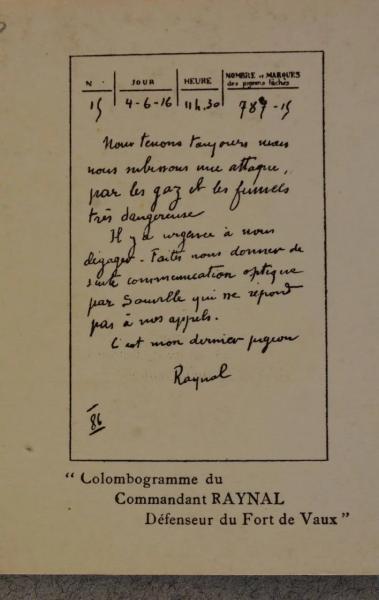 N° JOUR HEURE NOMBRE et MARQUES
des pigeons lâchés
15 4-6-16 11h.30 787-15
Nous tenons toujours mais
nous subissons une attaque,
par les gaz et les fumées
très dangereuse
Il y a urgence à nous
dégager - Faites nous donner de
suite communication optique
par Souville qui ne répond
pas à nos appels.
C'est mon dernier pigeon
Raynal
86
“ Colombogramme du
Commandant RAYNAL
Défenseur du Fort de Vaux ”